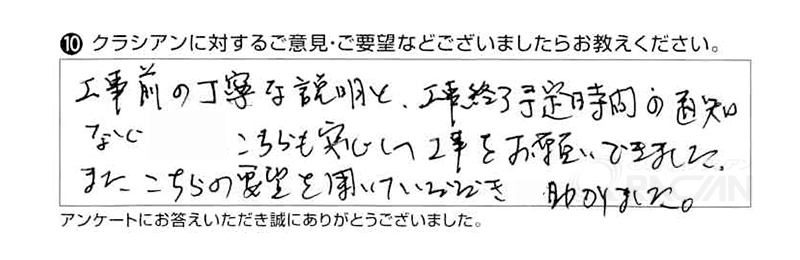 ⑩ クラシアンに対するご意見・ご要望などございましたらお教えください。
工事前の丁寧な説明と、工事終了予定時間の通知
など こちらも安心して工事をお願いできました。
またこちらの要望を聞いていただき 助かりました。
アンケートにお答えいただき誠にありがとうございました。